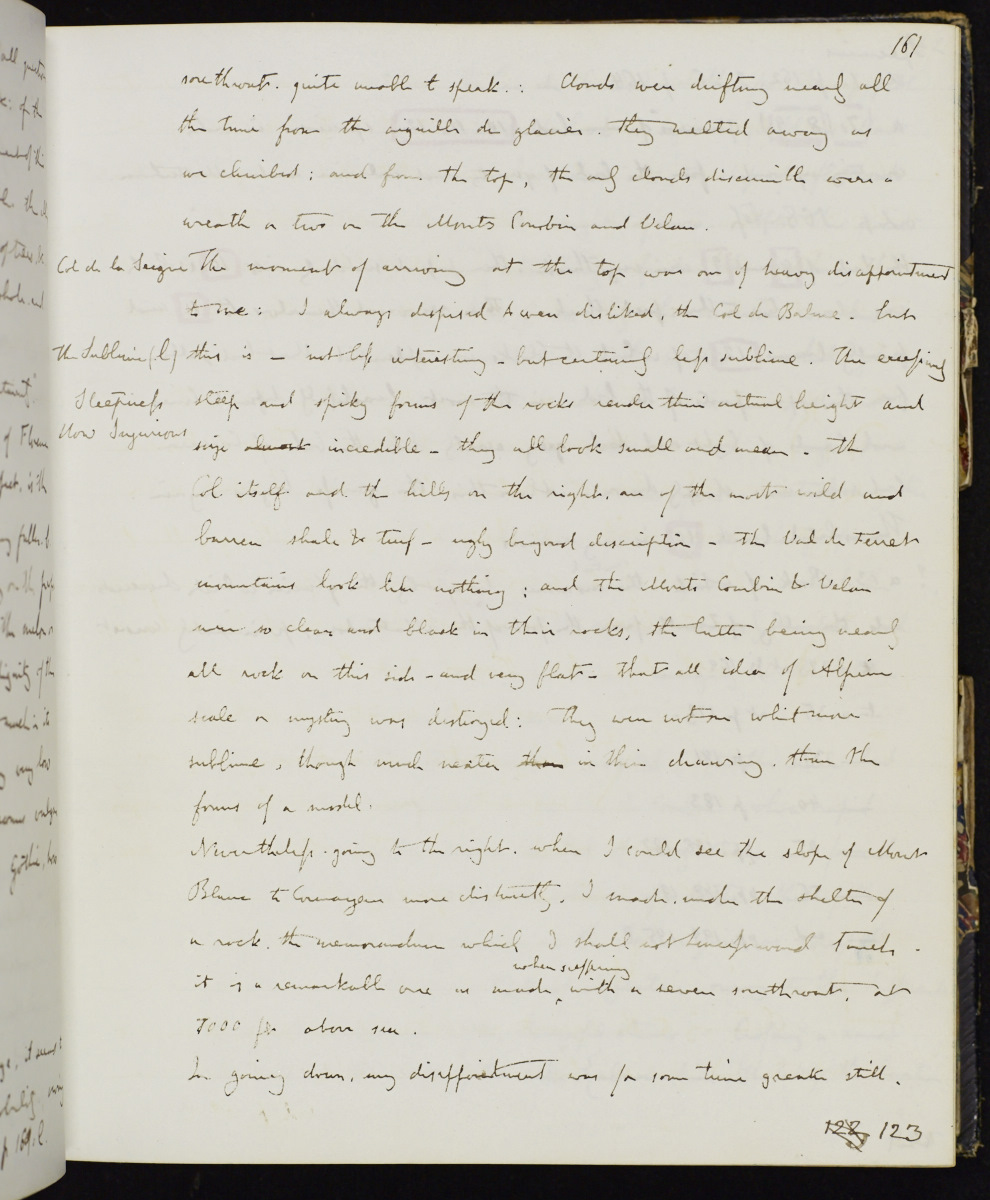 161
sorethroat. quite unable to speak. : Clouds were drifting nearly all
the time from the aiguille du glacier. They melted away as
we climbed; and from the top, the only clouds discernible were a
wreath or two on the Monts Combin and Velan.
Col de la Seigne The moment of arriving at the top was one of heavy disappointment
to me: I always despised & even disliked, the Col de Balme - but
The Sublime (l) this is - not less interesting - but certainly less sublime. The exceeding
Steepness steep and spiky forms of the rocks render their actual height and
How Injurious size almost incredible - they all look small and mean - The
Col itself and the hills on the right, are of the most wild and
barren shale & turf - ugly beyond description - the Val de Ferret
mountains look like nothing; and the Monts Combin & Velan
were so clear and black in their rocks, the latter being nearly
all rock on this side - and very flat - that all idea of Alpine
scale or mystery was destroyed: They were not one whit more
sublime, though much neater than in their drawing, than the
forms of a model.
Nevertheless. going to the right. when I could see the slope of Mont
Blanc to Courmayeur more distinctly, I made, under the shelter of
a rock, the memorandum which I shall not henceforward touch -
when suffering
it is a remarkable one as made with a severe sorethroat, at
7000 feet above sea.
In going down, my disappointment was for some time greater still.
122 123